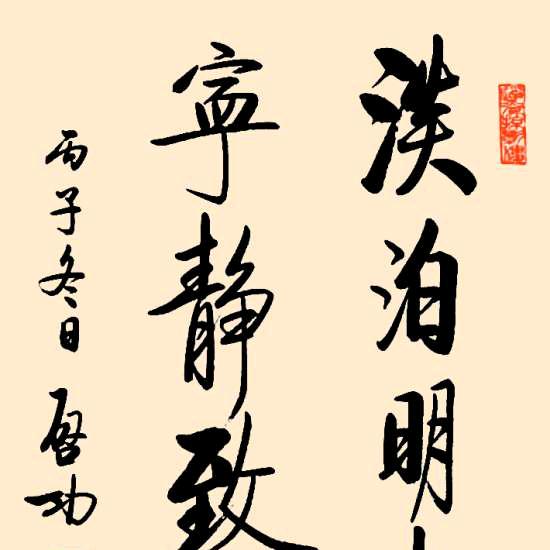 淡泊明
寧靜致
丙子冬日 啓功